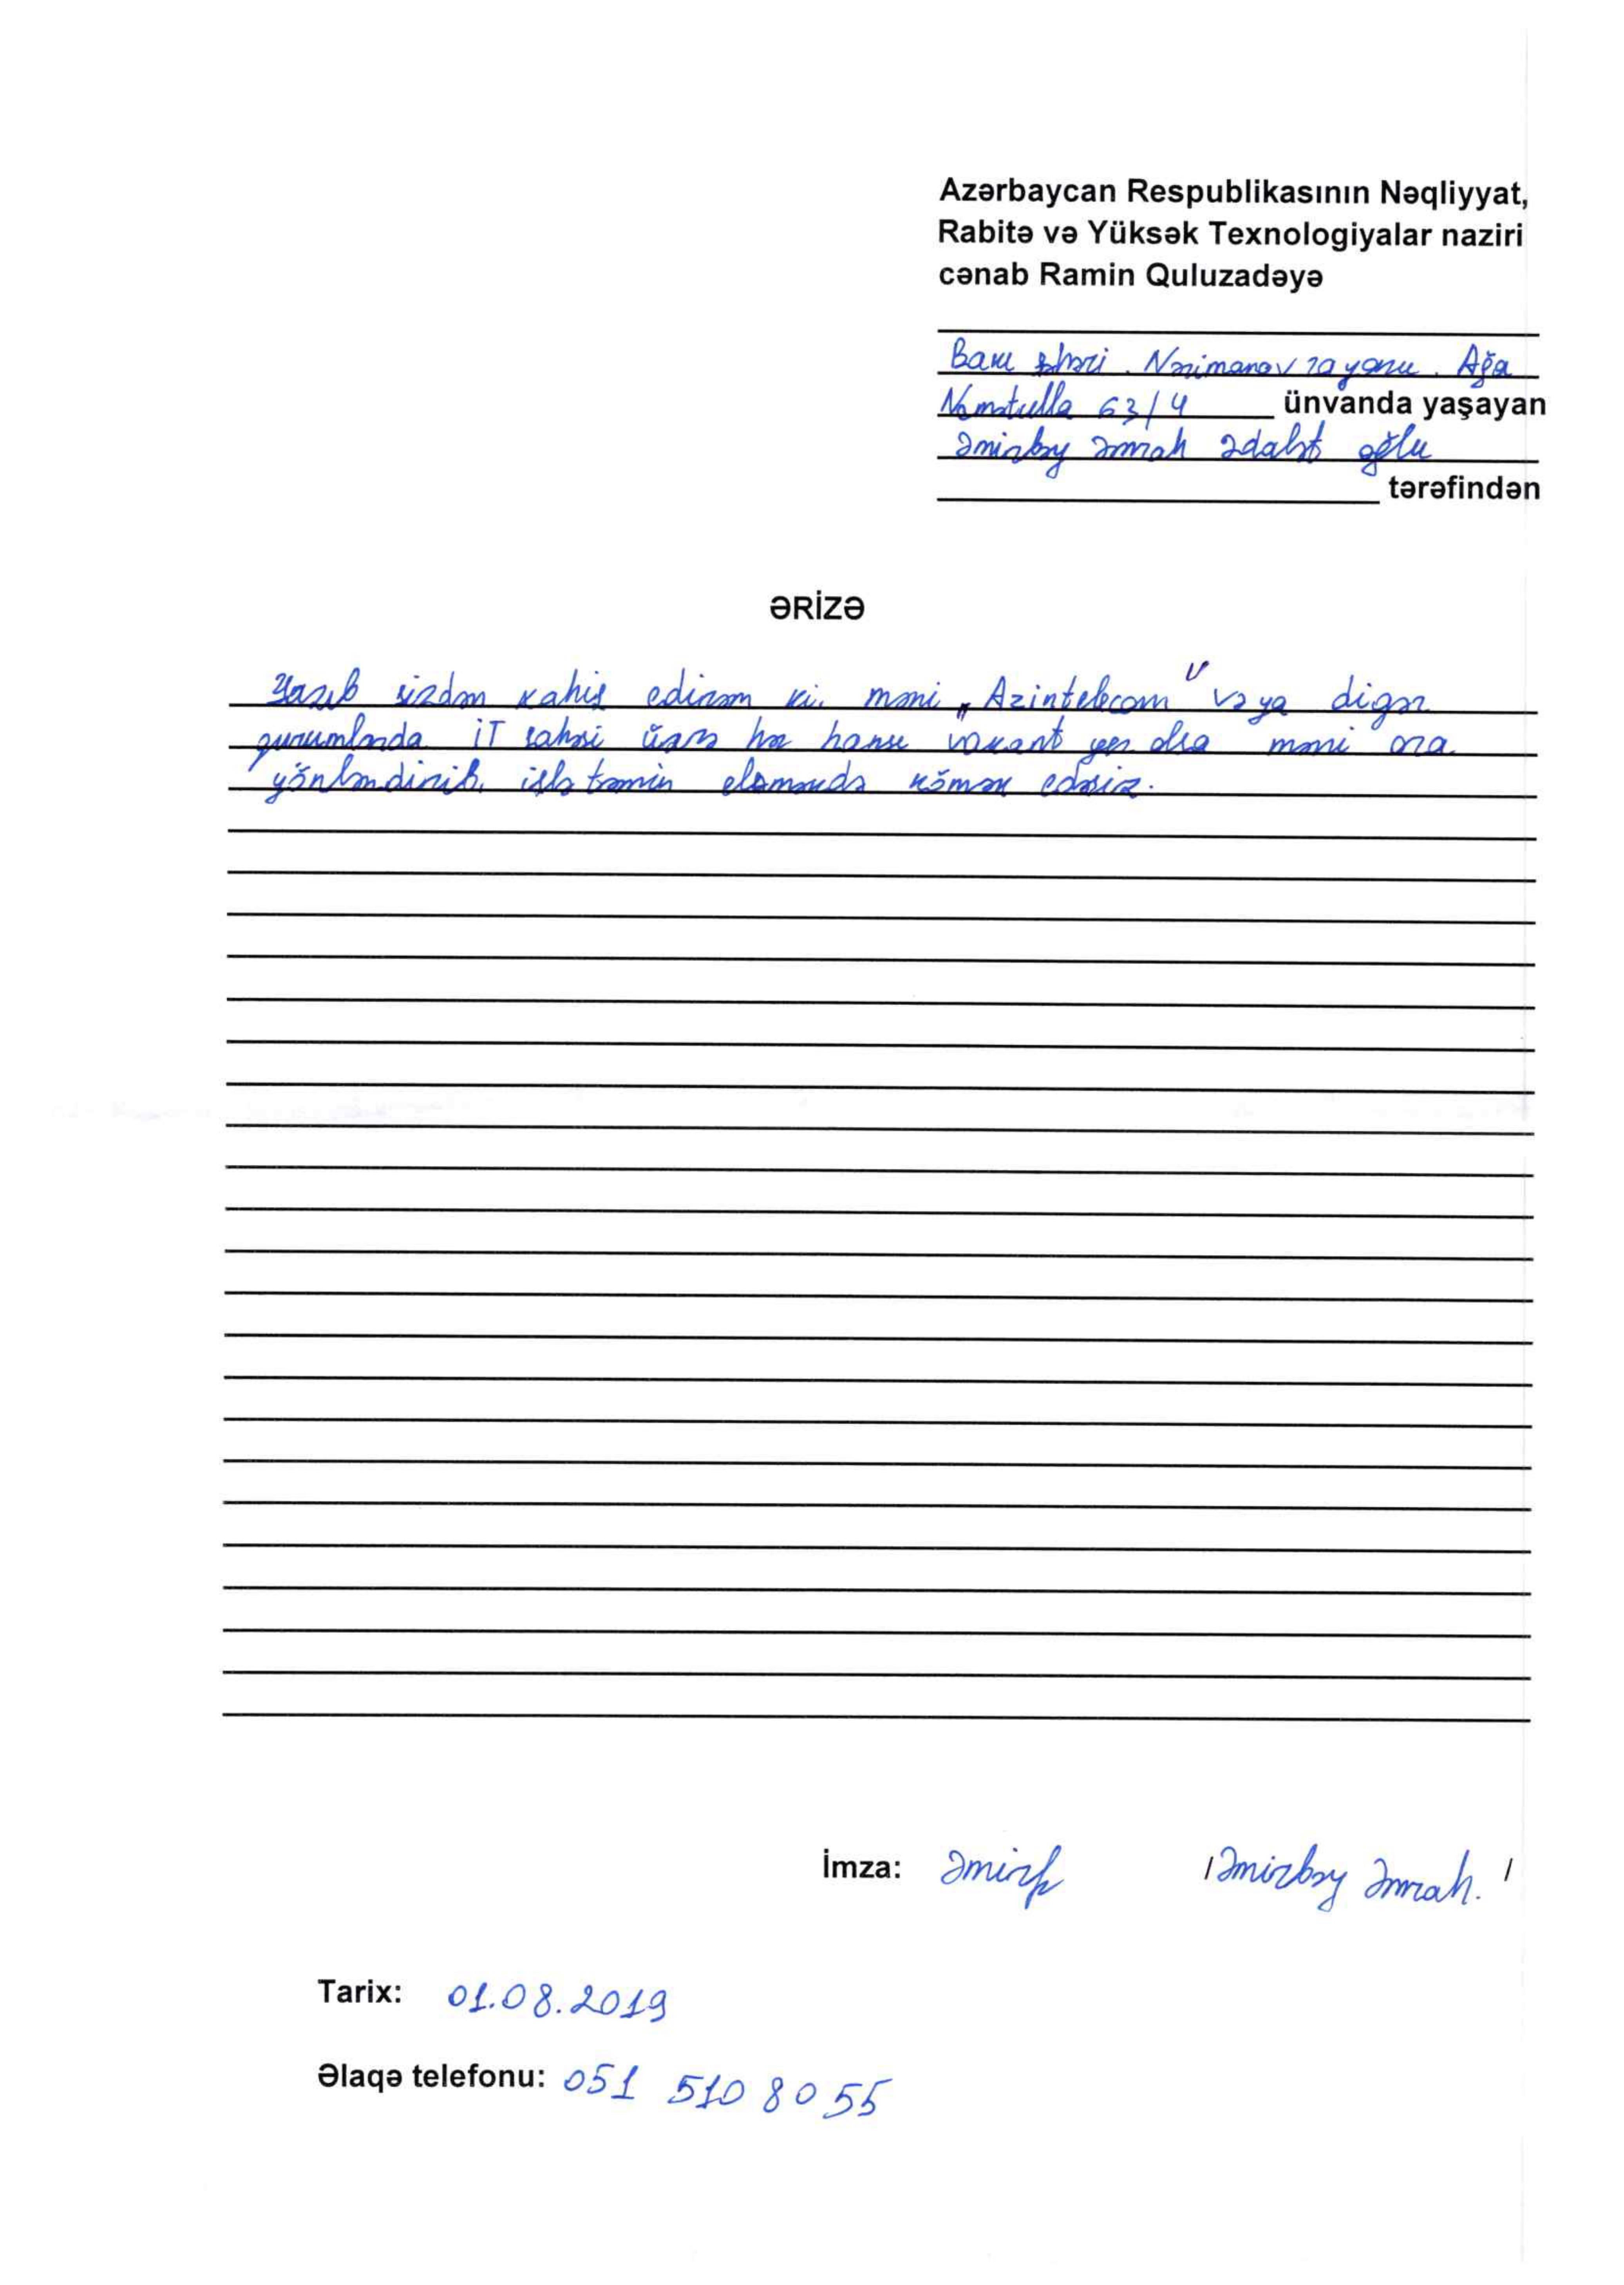 Azərbaycan Respublikasının Nəqliyyat,
Rabitə və Yüksək Texnologiyalar naziri
cənab Ramin Quluzadəyə
Bakı şəhəri. Nərimanov rayonu. Ağa
Nemətulla 63/4 ünvanda yaşayan
Əmirbəy Əmrah Ədalət oğlu
tərəfindən
ƏRİZƏ
Yazıb sizdən xahiş edirəm ki, məni „Azintelecom" vəya digər
qurumlarda İT sahəsi üzrə hər hansı vakant yer olsa məni ora
yönləndirib, işlə təmin eləməkdə kömək edəsiz.
İmza: Əmirb /Əmirbəy Əmrah./
Tarix: 01.08.2019
Əlaqə telefonu: 051 510 80 55